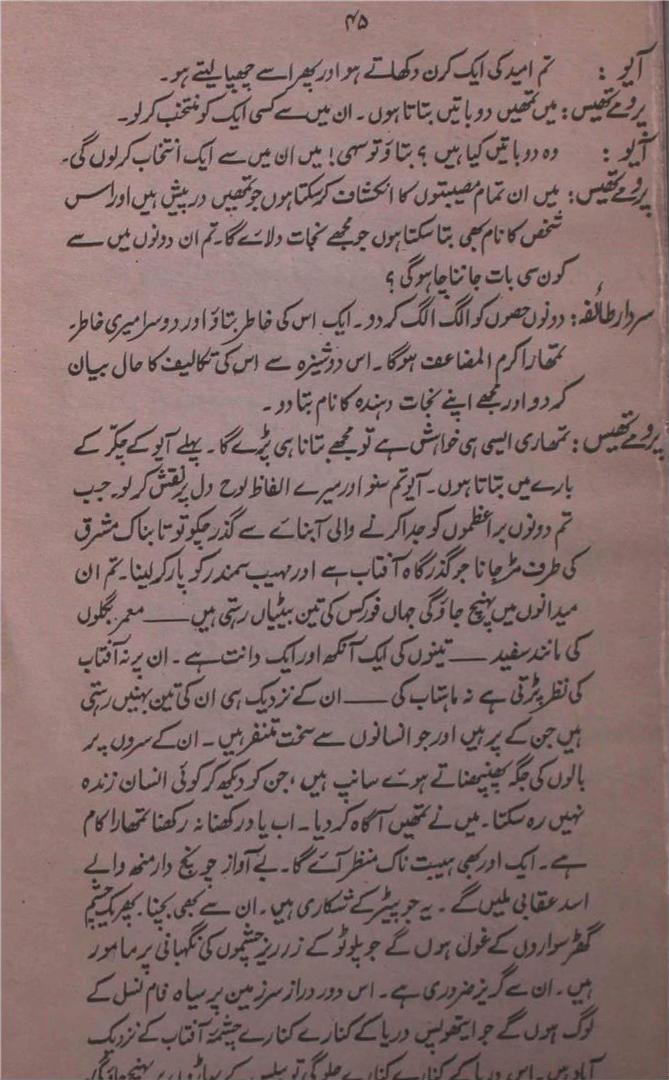 ۴۵
آیو : تم امید کی ایک کرن دکھاتے ہو اور پھر اسے چھپا لیتے ہو۔
پرومے تھیس : میں تمھیں دو باتیں بتاتا ہوں۔ ان میں سے کسی ایک کو منتخب کر لو۔
آیو : وہ دو باتیں کیا ہیں ؟ بتاؤ تو سہی! میں ان میں سے ایک انتخاب کر لوں گی۔
پرومے تھیس : میں ان تمام مصیبتوں کا انکشاف کر سکتا ہوں جو تمھیں در پیش ہیں اور اس
شخص کا نام بھی بتا سکتا ہوں جو مجھے نجات دلائے گا۔ تم ان دونوں میں سے
کون سی بات جاننا چاہو گی ؟
سردار طائفہ : دونوں حصوں کو الگ الگ کر دو۔ ایک اس کی خاطر بتاؤ اور دوسرا میری خاطر۔
تمھارا کرم المضاعف ہوگا۔ اس دوشیزہ سے اس کی تکالیف کا حال بیان
کر دو اور مجھے اپنے نجات دہندہ کا نام بتا دو۔
پرومے تھیس : تمھاری ایسی ہی خواہش ہے تو مجھے بتانا ہی پڑے گا۔ پہلے آیو کے چکر کے
بارے میں بتاتا ہوں۔ آیو تم سنو اور میرے الفاظ لوح دل پر نقش کر لو۔ جب
تم دونوں براعظموں کو جدا کرنے والی آبنائے سے گذر چکو تو تابناک مشرق
کی طرف مڑ جانا جو گذرگاہ آفتاب ہے اور مہیب سمندر کو پار کر لینا۔ تم ان
میدانوں میں پہنچ جاؤ گی جہاں فورکس کی تین بیٹیاں رہتی ہیں —— معمر بگلوں
کی مانند سفید —— تینوں کی ایک آنکھ اور ایک دانت ہے۔ ان پر نہ آفتاب
کی نظر پڑتی ہے نہ ماہتاب کی —— ان کے نزدیک ہی ان کی تین بہنیں رہتی
ہیں جن کے پر ہیں اور جو انسانوں سے سخت متنفر ہیں۔ ان کے سروں پر
بالوں کی جگہ پھنپھناتے ہوئے سانپ ہیں ، جن کو دیکھ کر کوئی انسان زندہ
نہیں رہ سکتا۔ میں نے تمھیں آگاہ کر دیا۔ اب یاد رکھنا نہ رکھنا تمھارا کام
ہے۔ ایک اور بھی ہیبت ناک منظر آئے گا۔ بے آواز چونچ دار منھ والے
اسد عقابی ملیں گے۔ یہ جوپیٹر کے شکاری ہیں۔ ان سے بھی بچنا۔ پھر یک چشم
گھڑ سواروں کے غول ہوں گے جو پلوٹو کے زرریز چشموں کی نگہبانی پر مامور
ہیں۔ ان سے گریز ضروری ہے۔ اس دور دراز سرزمین پر سیاہ فام نسل کے
لوگ ہوں گے جو ایتھوپس دریا کے کنارے کنارے چشمۂ آفتاب کے نزدیک
آباد ہیں۔ اس دریا کے کنارے کنارے چلو گی تو کے پہاڑوں پر پہنچ جاؤ گی